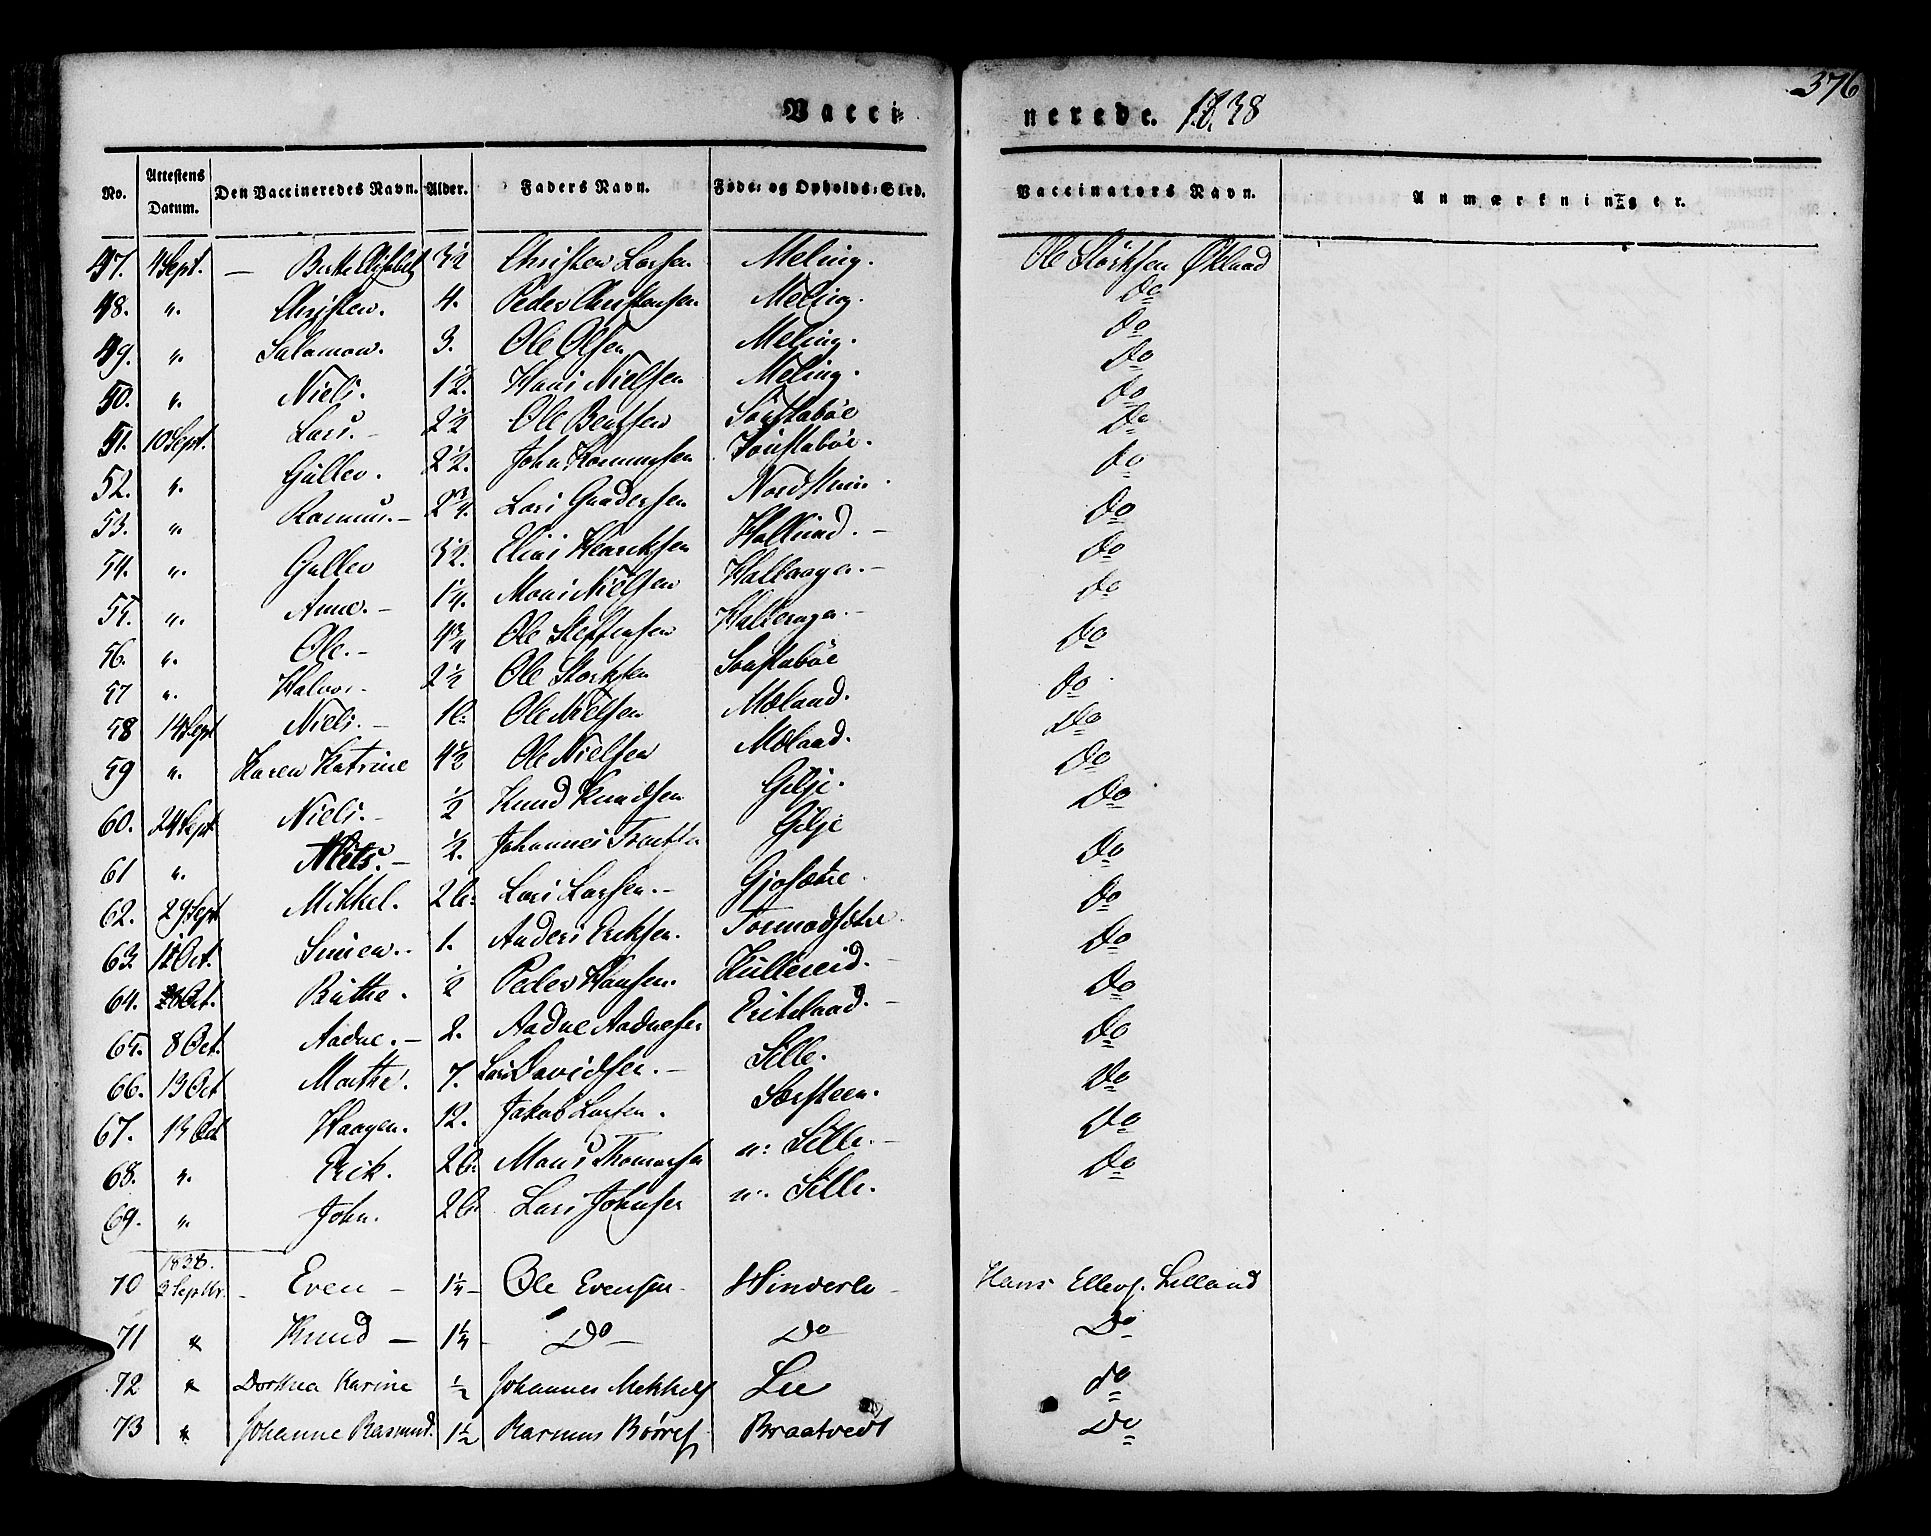 376
Vacci- nerede. 1838
No. Attestens Datum. Den Vaccineredes Navn. Alder. Faders Navn. Føde- og Opholds-Sted. Vaccinators Navn. Anmærkninger.
47. 4 Sept. — Berthe Elisabeth 3½ Christen Larsen Meling. Ole Størksen Økland
48. " Christen. 4. Peder Christensen Meling. Do
49. " Salamon. 3. Ole Olsen Meling. Do
50. " Niels. 1½. Hans Nielsen Meling. Do
51. 10 Sept. Lars. - 2½ Ole Bentsen Do
52. " Gullev. 2½. John Rasmussen Do
53. " Rasmus. - 2¾. Lars Gundersen Do
54. " Gullev 3½. Elias Henriksen Do
55. " Anne. - 1¼. Mons Nielsen Do
56. " Ole. - 4¾ Ole Steffensen Do
57 " Halvor. 2½ Ole Størksen Do
58 14 Sept Niels. - Ole Nielsen Mæland. Do
59 " Karen Katrine 4½ Ole Nielsen Mæland. Do
60. 24 Sept Niels. - ½ Knud Knudsen Gilje. Do
61 " Niels. - ½. Johannes Gilje Do
62. 29 Sept Mikkel. Lars Larsen. - Gjosætre. Do
63. Oct. Simen. - 1. Anders Eriksen. Tormodsætre. Do
64. Oct. Birthe. ½ Peder Hansen. Do
65. 8 Oct. Aadne. - 2. Aadne Aadnesen Do
66. 13 Oct Marthe. 7. Lars Davidsen. - Sille. Do
67. 13 Oct Haagen. 12. Jakob Larsen. Særsteen. Do
68. " Erik. Mons Thomassen n: Sille. - Do
69. " John. Lars Johnsen n. Sille. Do
1838.
70 2 Septbr. - Even - 1¼ - Ole Evensen - Hinderli - Hans Ellevs. Lilland
71 " Knud - 1¼ - Do - Do Do
72 " Dorthea Karine ½ Johannes Mekkels Lie do
73 " Johanne Rasmusd. 1½ Rasmus Børres Braatvedt Do